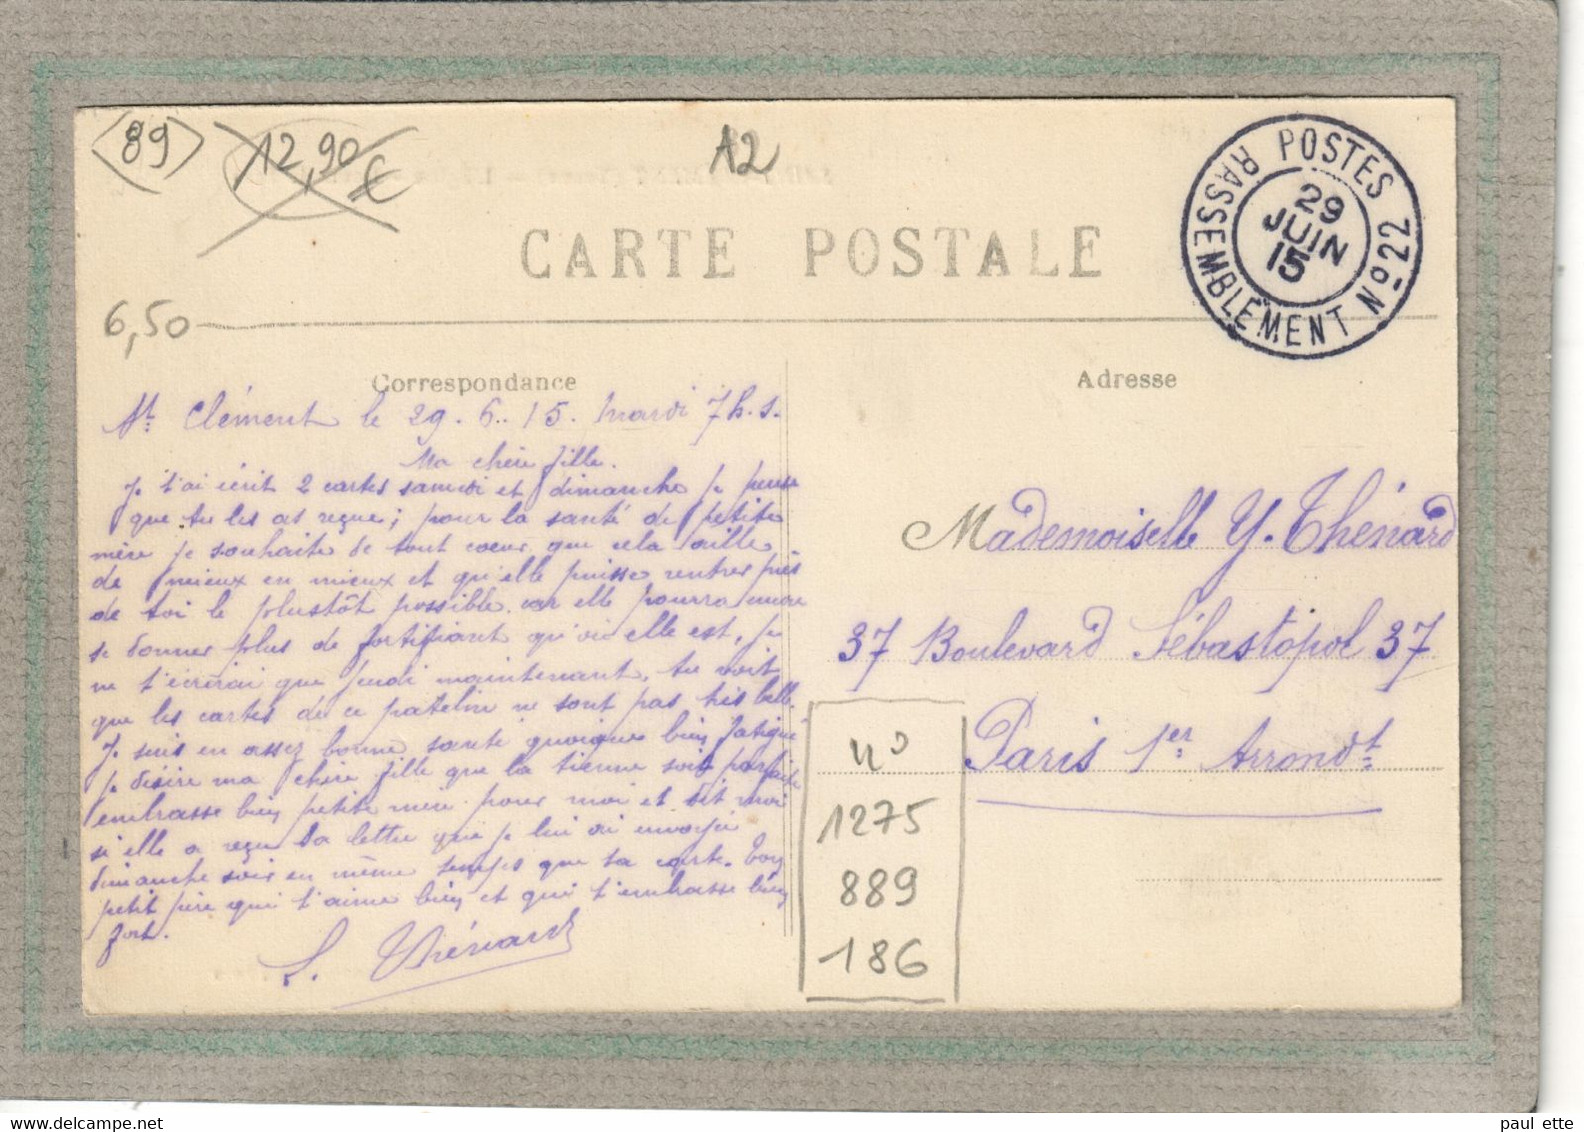 89
12,90 €
A2
POSTES
RASSEMBLEMENT Nº 22
29
JUIN
15
CARTE POSTALE
6,50
Correspondance
Adresse
St Clément le 29.6.15. Mardi 7h.s.
Ma chère fille.
Je t'ai écrit 2 cartes samedi et dimanche je pense
que tu les as reçue; pour la santé de petite
mère je souhaite de tout coeur que cela aille
de mieux en mieux et qu'elle puisse rentrer près
de toi le plustôt possible. car elle pourra mieux
se donner plus de fortifiant qu'où elle est, je
ne t'écrirai que jeudi maintenant, tu voit
que les cartes de ce patelin ne sont pas très belle.
Je suis en assez bonne santé quoique bien fatigué
je désire ma chère fille que la tienne soit parfaite
embrasse bien petite mère pour moi et dit moi
si elle a reçu sa lettre que je lui ai envoyé
dimanche soir en même temps que ta carte. Ton
petit père qui t'aime bien et qui t'embrasse bien
fort.
L. Thénard
Mademoiselle Y. Thénard
37 Boulevard Sébastopol 37
Paris 1er Arrondt
nº
1275
889
186
paul ette